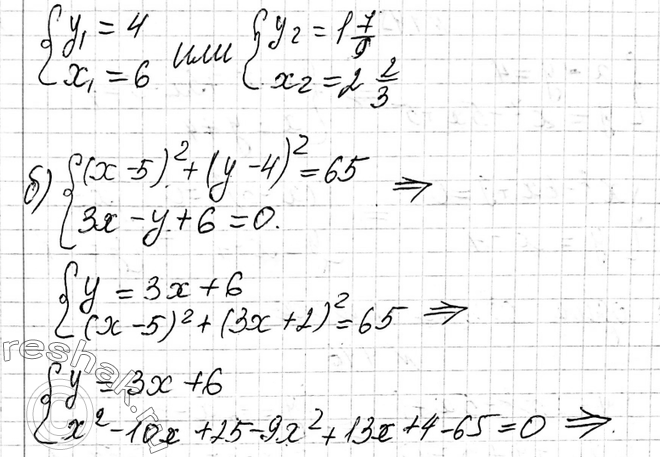 { y₁ = 4 или { y₂ = 1 7/9
{ x₁ = 6 { x₂ = 2 2/3
б) { (x - 5)² + (y - 4)² = 65 ⇒
{ 3x - y + 6 = 0.
{ y = 3x + 6
{ (x - 5)² + (3x + 2)² = 65 ⇒
{ y = 3x + 6
{ x² - 10x + 25 - 9x² + 13x + 4 - 65 = 0 ⇒.
reshak.ru